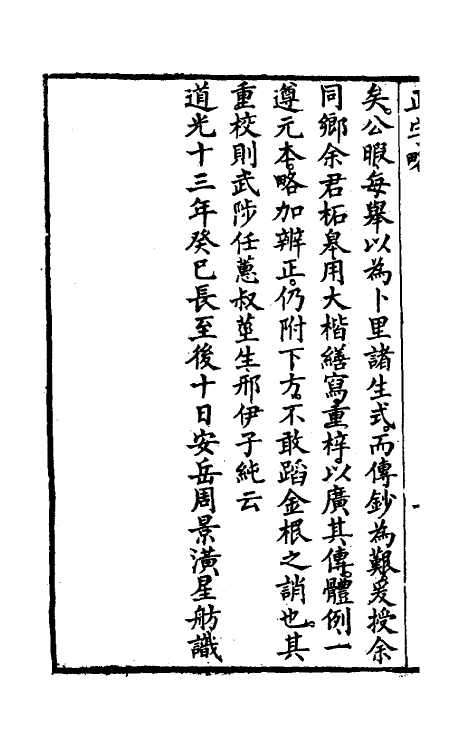 正字略
矣。公暇每舉以為卜里諸生式。而傳鈔為艱。爰授余
同鄉余君柘皋。用大楷繕寫重梓。以廣其傳。體例一
遵元本。略加辨正。仍附下方。不敢蹈金根之誚也。其
重校則武陟任蕙叔莖生。邢伊子純云
道光十三年癸巳長至後十日安岳周景潢星舫識